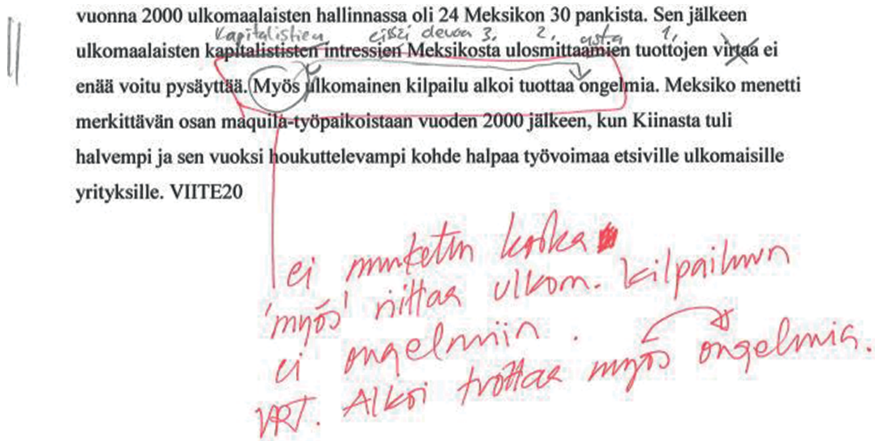 vuonna 2000 ulkomaalaisten hallinnassa oli 24 Meksikon 30 pankista. Sen jälkeen
Kapitalistien 3. 2. 1.
ulkomaalaisten kapitalististen intressien Meksikosta ulosmittaamien tuottojen virtaa ei
enää voitu pysäyttää. Myös ulkomainen kilpailu alkoi tuottaa ongelmia. Meksiko menetti
merkittävän osan maquila-työpaikoistaan vuoden 2000 jälkeen, kun Kiinasta tuli
halvempi ja sen vuoksi houkuttelevampi kohde halpaa työvoimaa etsiville ulkomaisille
yrityksille. VIITE20
ei muutettu koska
'myös' viittaa ulkom. kilpailuun
ei ongelmiin.
VRT. Alkoi tuottaa myös ongelmia.